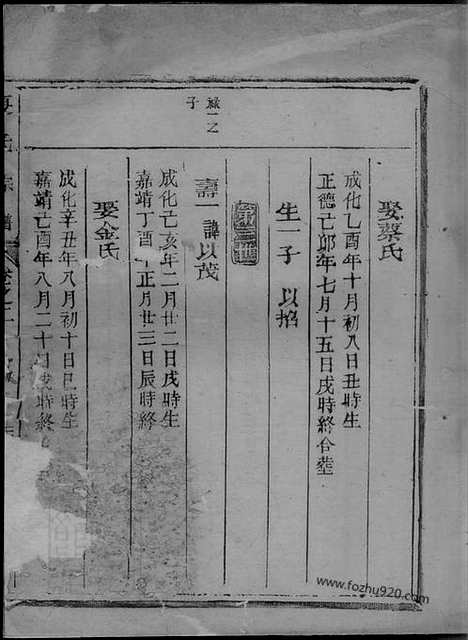 娶蔡氏
成化乙酉年十月初八日丑時生
正德己卯年七月十五日戌時終合塟
生一子 以掐
壽一 諱以茂
成化己亥年二月廿二日戌時生
嘉靖丁酉年正月廿三日辰時終
娶金氏
成化辛丑年八月初十日巳時生
嘉靖己酉年八月二十日戌時終
祿一之
子
宗譜
www.fozhu920.com